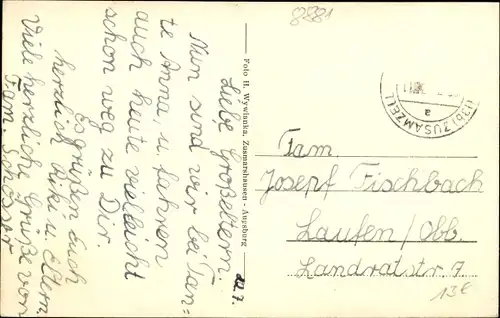 8881
22.7.
Liebe Großeltern.
Nun sind wir bei Tan=
te Anna u. fahren
auch heute vielleicht
schon weg zu Dir
Es grüßen Euch
herzlich Riki u. Eltern.
Viele herzliche Grüße von
Fam. Schosser
Foto H. Wywlonka, Zusmarshausen - Augsburg
(13b) ZUSAMZELL
a
Fam.
Josepf Fischbach
Laufen/Obb.
Landratstr. 7
13€